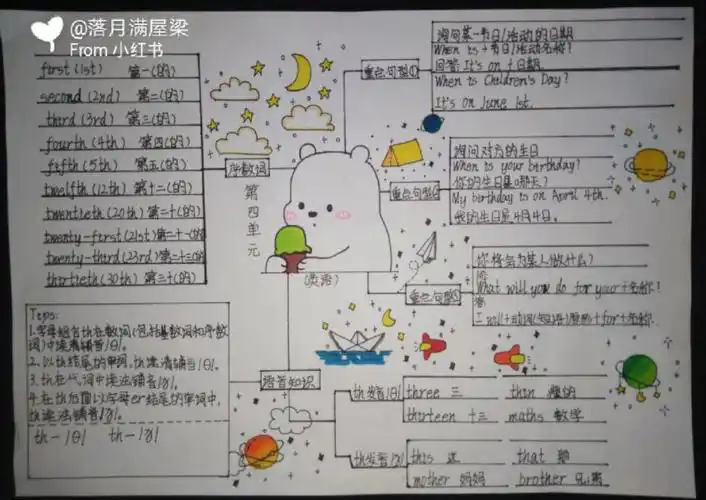 @落月满屋梁
From 小红书
first (1st) 第一(的)
second (2nd) 第二(的)
third (3rd) 第三(的)
fourth (4th) 第四(的)
fifth (5th) 第五(的)
twelfth (12th) 第十二(的)
twentieth (20th) 第二十(的)
twenty-first (21st) 第二十一(的)
twenty-third (23rd) 第二十三(的)
thirtieth (30th) 第三十(的)
序数词
第四单元
(英语)
重点句型①
询问某一节日/活动的日期
When is+节日/活动名称?
回答 It's on+日期.
When is Children's Day?
It's on June 1st.
重点句型②
询问对方的生日
When is your birthday?
你的生日是哪天?
My birthday is on April 4th.
我的生日是4月4日。
重点句型③
你将会为某人做什么?
问
What will you do for your+名称?
答
I will+动词(短语)原形+for+名称.
语音知识
Teps:
1.字母组合th在数词(包括基数词和序数
词)中读清辅音/θ/。
2.以th结尾的单词,th读清辅音/θ/。
3.th在代词中读浊辅音/ð/。
4.在th后面以字母er结尾的单词中,
th读浊辅音/ð/。
th-/θ/ th-/ð/
th发音/θ/
three 三 thin 瘦的
thirteen 十三 maths 数学
th发音/ð/
this 这 that 那
mother 妈妈 brother 兄弟